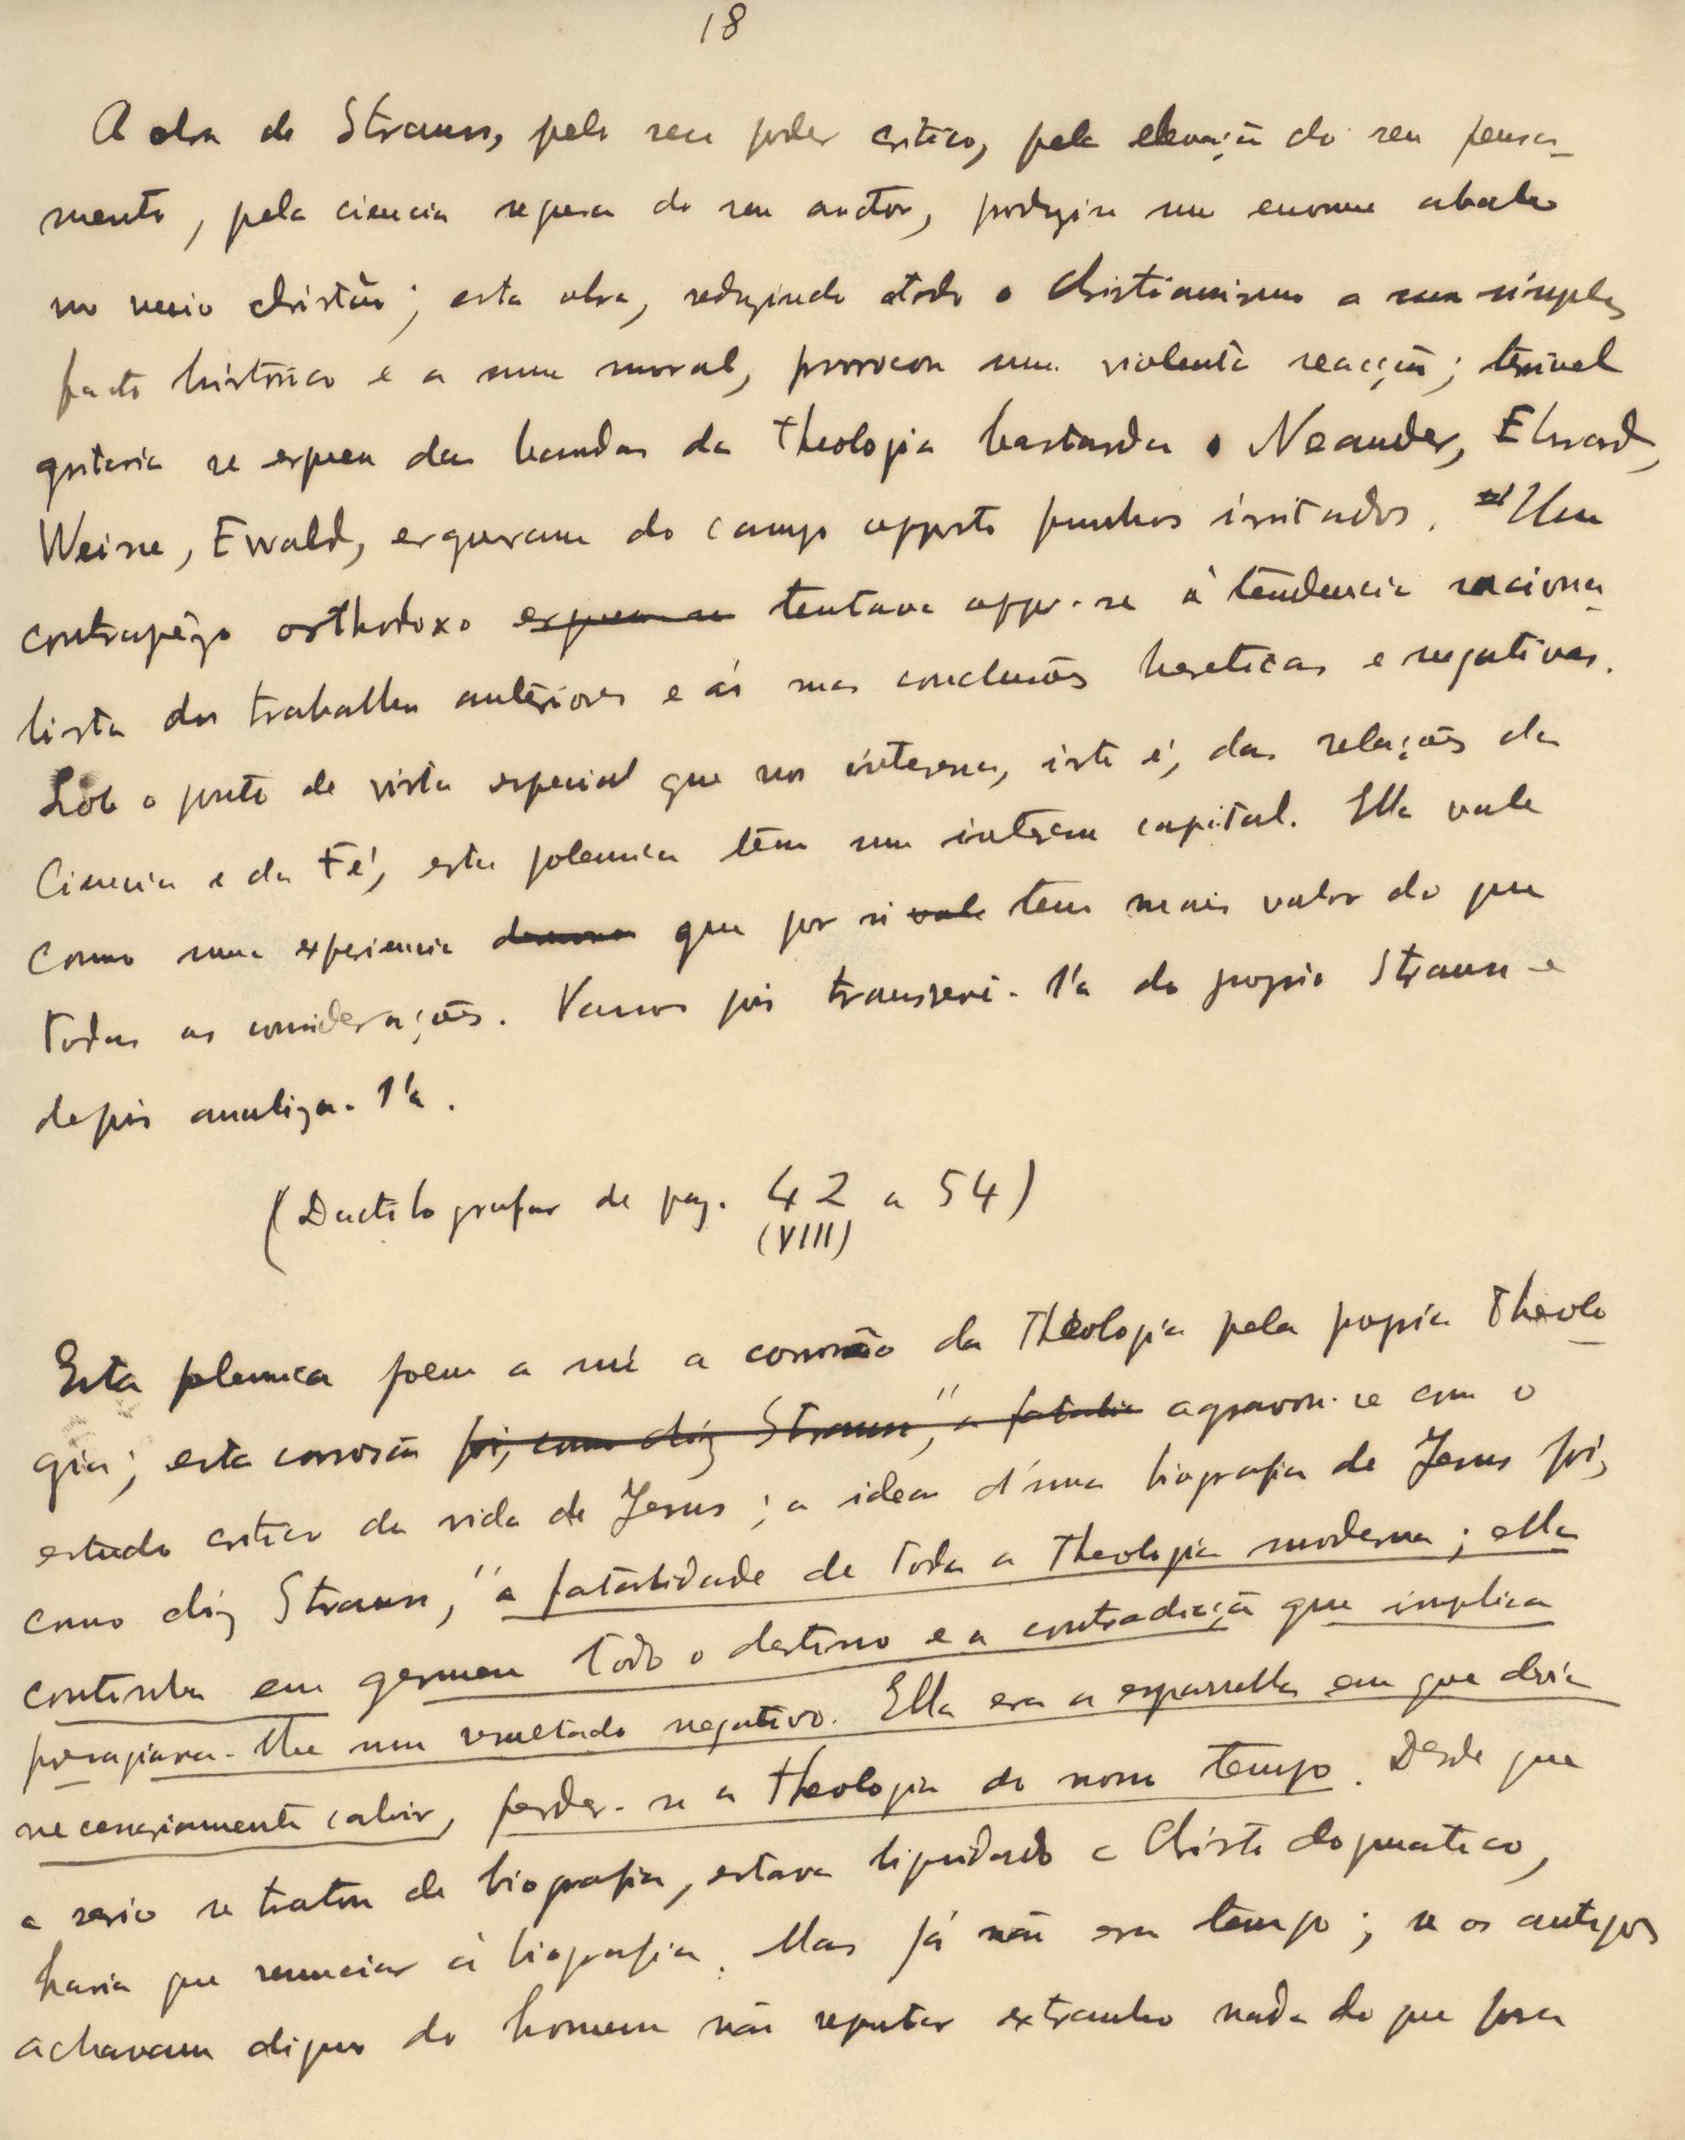 18
A obra de Strauss, pelo seu poder critico, pela elevação do seu pensa-
mento, pela ciencia segura do seu auctor, produziu um enorme abalo
no meio christão; esta obra, reduzindo todo o Christianismo a um simples
facto histórico e a uma moral, provocou uma violenta reacção; terrivel
gritaria se ergueu das bandas da theologia bastarda. Neander, Ebrard,
Weisse, Ewald, ergueram do campo opposto punhos irritados. Um
contrapêzo orthodoxo ergueu-se tentava oppor-se á tendencia raciona-
lista dos trabalhos anteriores e ás suas conclusões hereticas e negativas.
Sob o ponto de vista especial que nos interessa, isto é, das relações da
Ciencia e da Fé, esta polemica têm um interesse capital. Ella vale
como uma experiencia que por si vale tem mais valor do que
todas as considerações. Vamos pois transcrevê-l'a do proprio Strauss e
depois analiza-l'a.
(Dactilografar de pag. 42 a 54)
(VIII)
Esta polemica poem a nú a corrosão da Theologia pela propria Theolo-
gia; esta corrosão foi, como diz Strauss, "a fatalid agravou-se com o
estudo critico da vida de Jesus; a idea d'uma biografia de Jesus foi,
como diz Strauss, "a fatalidade de toda a Theologia moderna; ella
continha em germen todo o destino e a contradicção que implica
presagiava-lhe um resultado negativo. Ella era a esparrella em que devia
necessariamente cahir, perder-se a theologia do nosso tempo. Desde que
a serio se tratou de biografia, estava liquidado o Christo dogmatico,
havia que renunciar á biografia. Mas já não era tempo; se os antigos
achavam digno do homem não reputar extranho nada do que fora